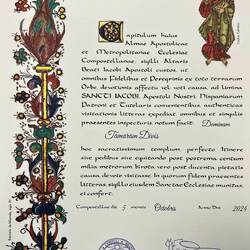 Capitulum huius
Almae Apostolicae
et Metropolitanae Ecclesiae
Compostellanae, sigilli Altaris
Beati Iacobi Apostoli custos, ut
omnibus Fidelibus et Peregrinis ex toto terrarum
Orbe, devotionis affectu vel voti causa, ad limina
SANCTI IACOBI, Apostoli Nostri, Hispaniarum
Patroni et Tutelaris convenientibus, authenticas
visitationis litteras expediat, omnibus et singulis
praesentes inspecturis, notum facit: Dominam
Tamaram Divis
hoc sacratissimum templum, perfecto Itinere
sive pedibus sive equitando post postrema centum
milia metrorum, birota vero post ducenta, pietatis
causa, devote visitasse. In quorum fidem praesentes
litteras, sigillo eiusdem Sanctae Ecclesiae munitas,
ei confert.
Compostellae die 5 mensis Octobris Anno Dni 2024